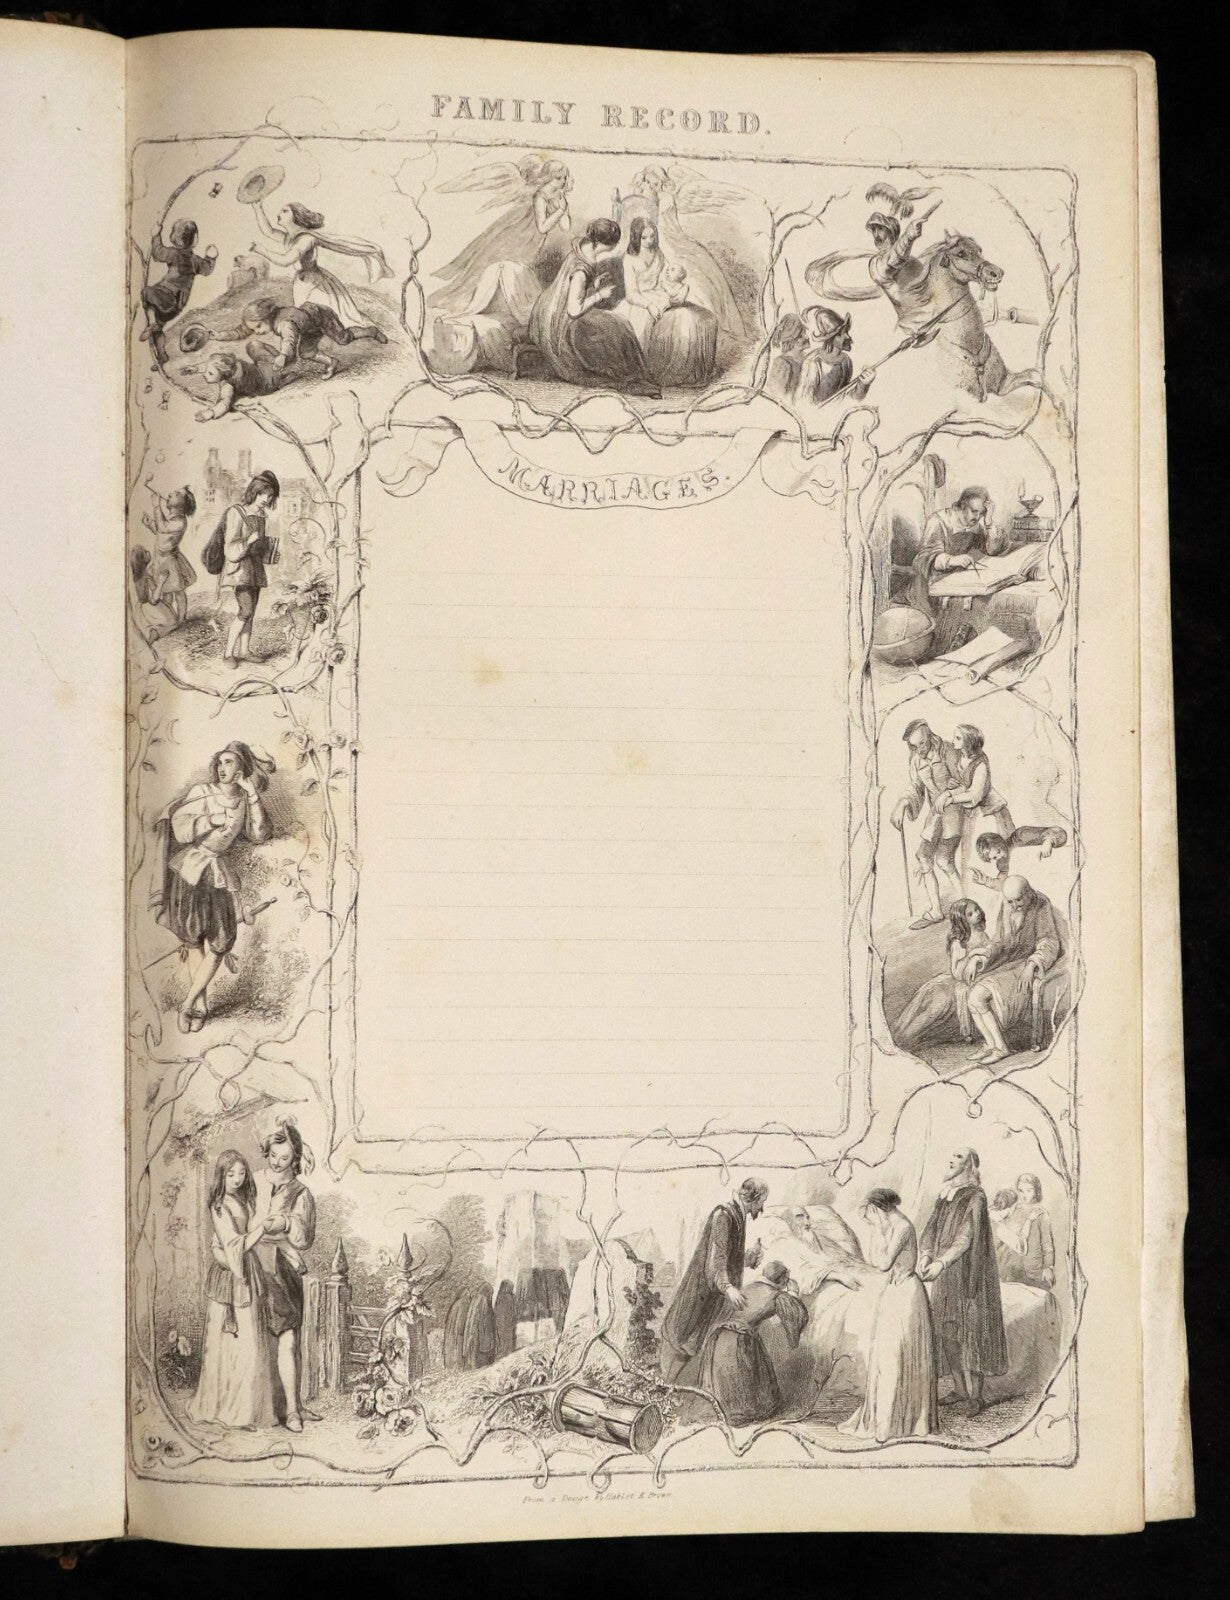 FAMILY RECORD.
MARRIAGES.
From a Design by Hablot K. Brown